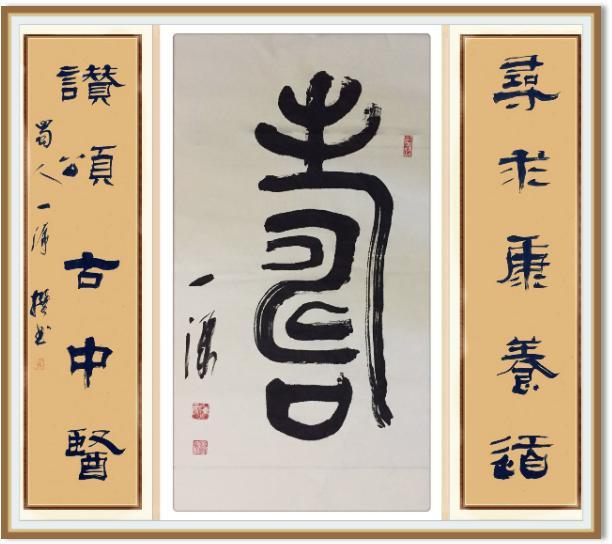 尋求康養道
壽
一濤
讚頌古中醫
蜀人一濤撰書